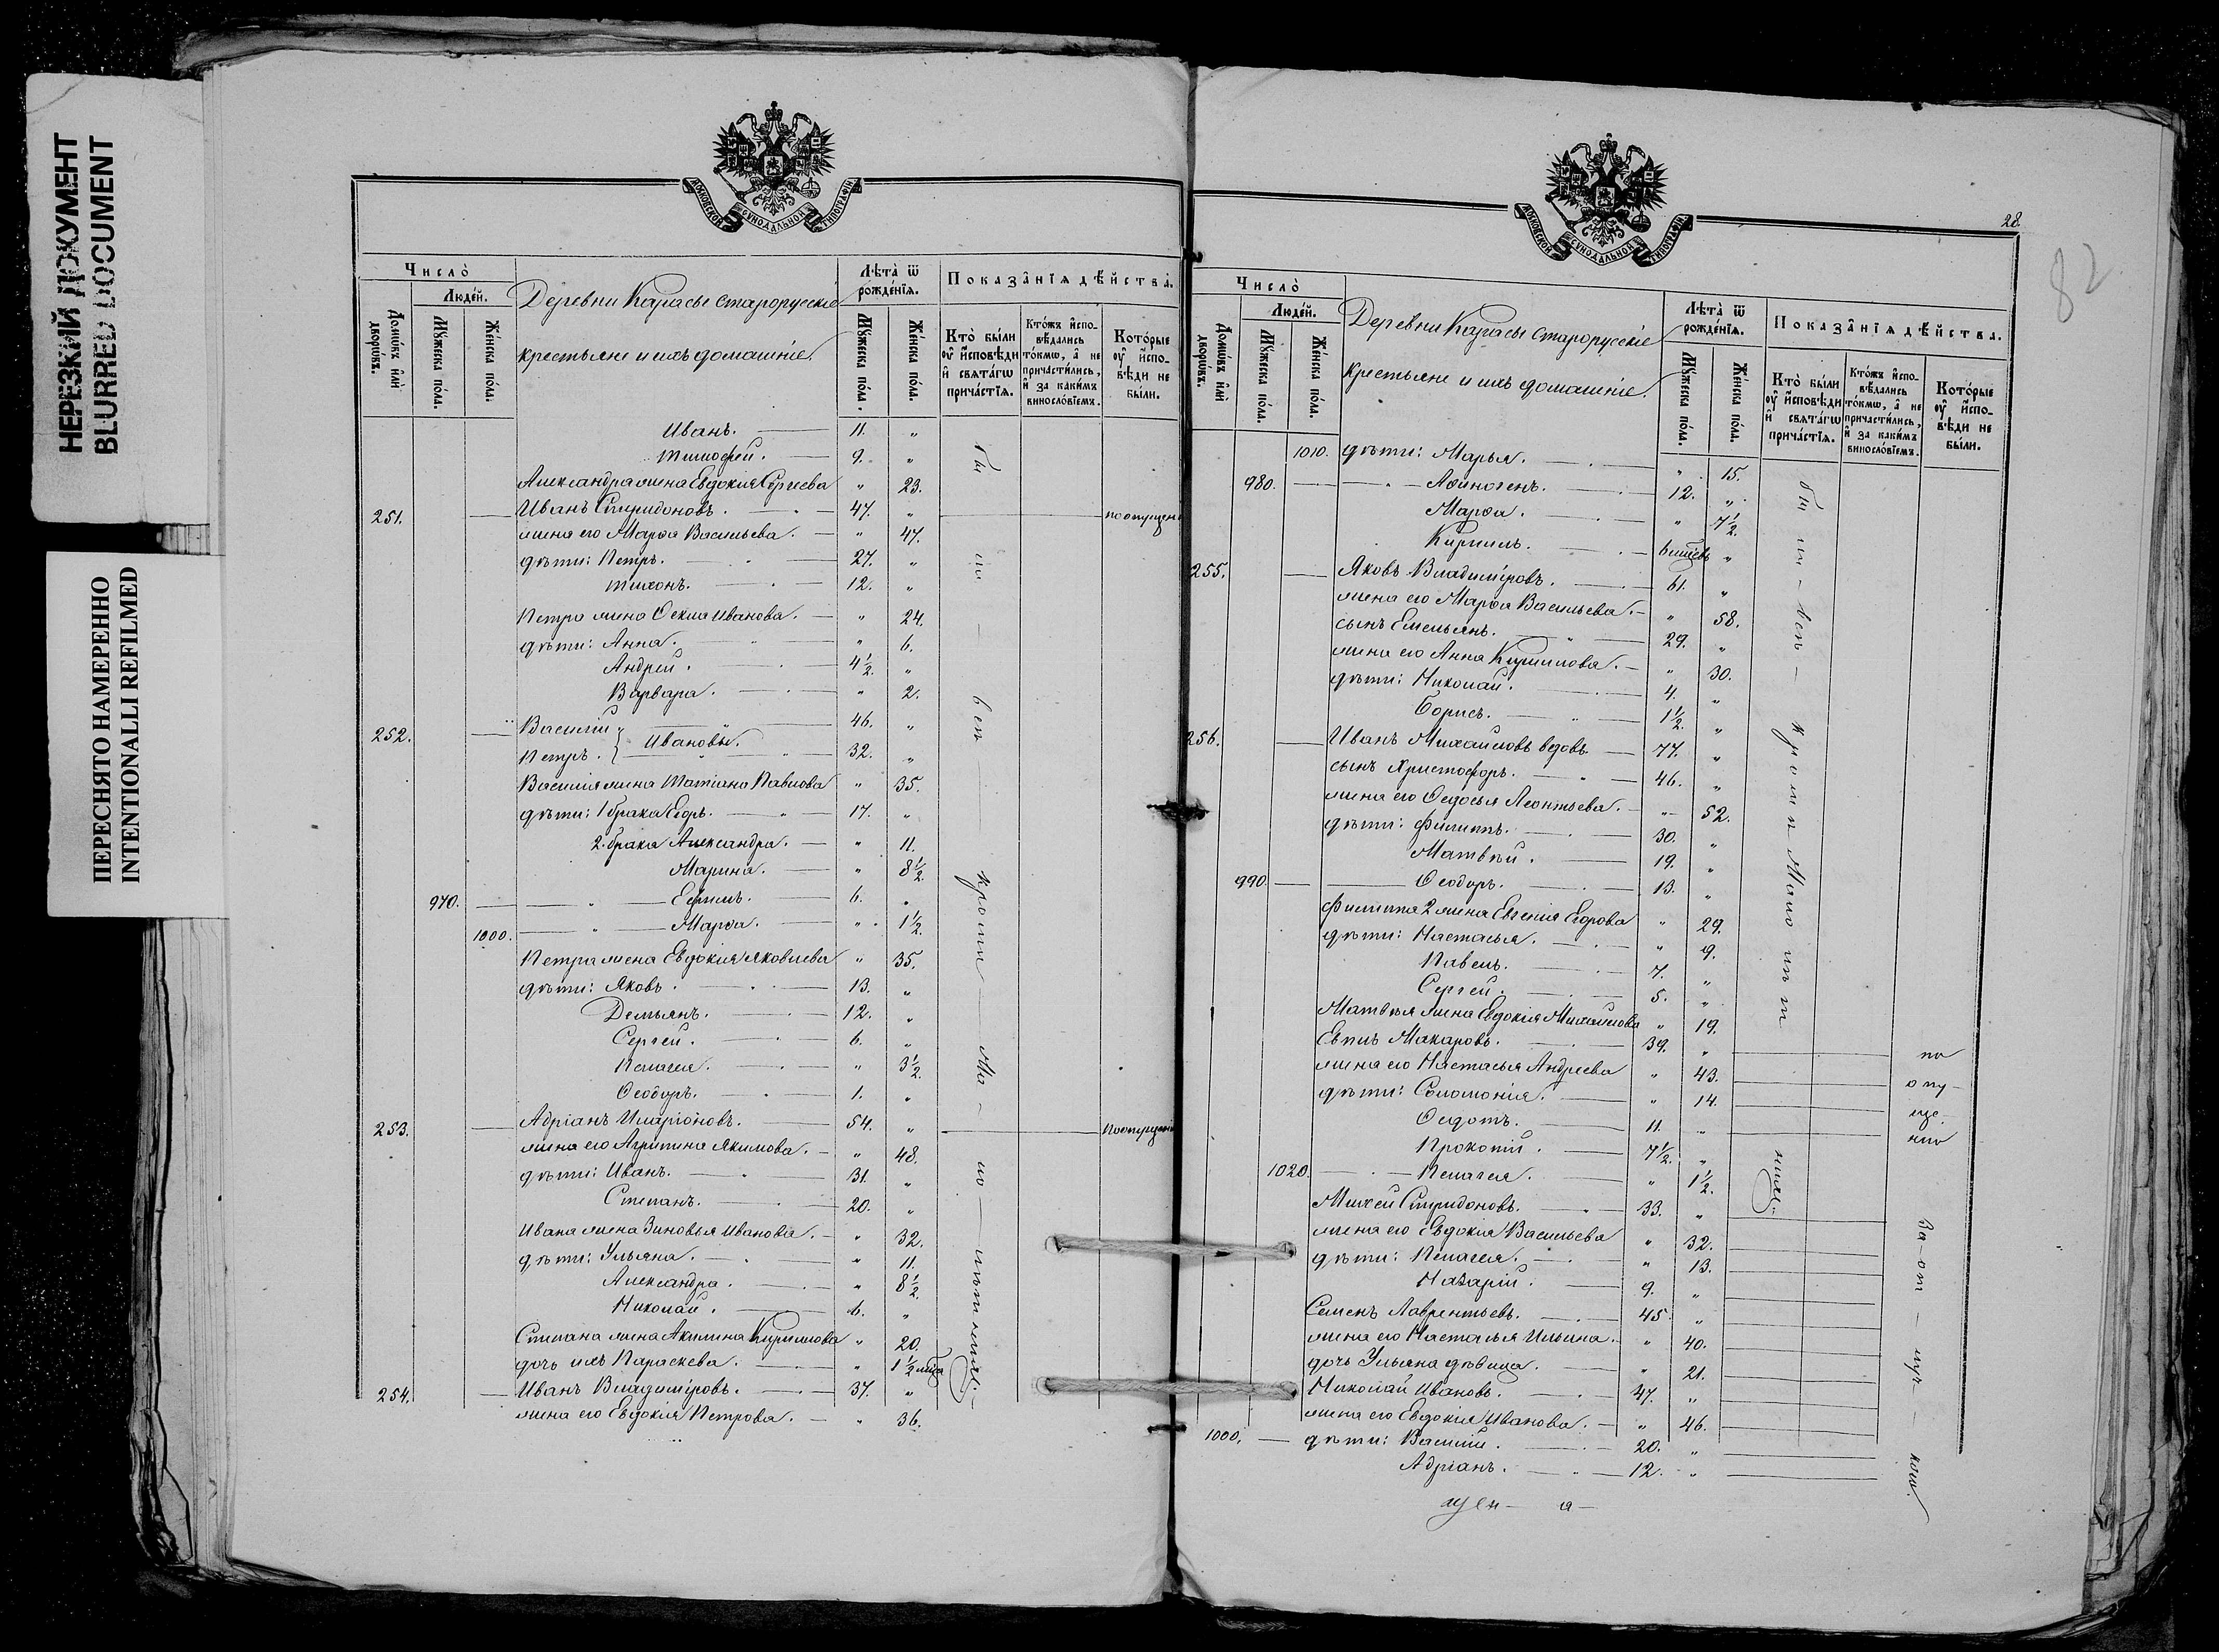 НЕРЕЗКИЙ ДОКУМЕНТ
BLURRED DOCUMENT
ПЕРЕСНЯТО НАМЕРЕННО
INTENTIONALLI REFILMED
МОСКОВСКОЙ СѴНОДАЛЬНОЙ ТИПОГРАФІИ
Число̀
Люде́й.
Домѡ́въ и҆лѝ дворѡ́въ.
Мꙋ́жеска по́ла.
Же́нска по́ла.
Деревни Карасье старорусскіе
крестьяне и ихъ домашніе.
Лѣта̀ ѿ рожде́нїѧ.
Мꙋ́жеска по́ла.
Же́нска по́ла.
Показа̂нїѧ дѣ́йства.
Кто̀ бы́ли ᲂу҆ и҆сповѣ́ди и҆ свѧта́гѡ прича́стїѧ.
Кто́жъ и҆спо-вѣ́дались то́кмѡ, а҆ не причасти́лись, и҆ за каки́мъ винослѡ́вїемъ.
Кото́рые ᲂу҆ и҆спо-вѣ́ди не бы́ли.
Иванъ. 11. „
Тимофей. 9. „
Александра жена Евдокия Сергеева „ 23.
251. Иванъ Спиридоновъ. 47. „ по опущен
жена его Марѳа Васильева. „ 47.
дѣти: Петръ. 27. „
Тихонъ. 12. „
Петра жена Ѳекла Иванова. „ 24.
дѣти: Анна. „ 6.
Андрей. 4½. „
Варвара. „ 2.
252. Василій 46. „
Ивановы.
Петръ. 32. „
Василія жена Татіана Павлова „ 35.
дѣти: 1 брака Егоръ. 17. „
2. брака Александра. „ 11.
Марина. „ 8½.
970. Ефимъ. 6. „
1000. Марѳа. „ 1½.
Петра жена Евдокія Яковлева „ 35.
дѣти: Яковъ. 13. „
Демьянъ. 12. „
Сергей. 6. „
Пелагея. „ 3½.
Ѳеодоръ. 1. „
253. Адріанъ Иларіоновъ. 54. „ по опущен
жена его Агрипина Якимова. „ 48.
дѣти: Иванъ. 31. „
Степанъ. 20. „
Ивана жена Зиновья Иванова. „ 32.
дѣти: Ульяна. „ 11.
Александра. „ 8½.
Николай. 6. „
Степана жена Акилина Кирилова „ 20.
дочь ихъ Параскева. „ 1½
254. Иванъ Владиміровъ. 37. „
жена его Евдокія Петрова. „ 36.
МОСКОВСКОЙ СѴНОДАЛЬНОЙ ТИПОГРАФІИ
28.
82
Число̀
Люде́й.
Домѡ́въ и҆лѝ дворѡ́въ.
Мꙋ́жеска по́ла.
Же́нска по́ла.
Деревни Карасье старорусскіе
крестьяне и ихъ домашніе.
Лѣта̀ ѿ рожде́нїѧ.
Мꙋ́жеска по́ла.
Же́нска по́ла.
Показа̂нїѧ дѣ́йства.
Кто̀ бы́ли ᲂу҆ и҆сповѣ́ди и҆ свѧта́гѡ прича́стїѧ.
Кто́жъ и҆спо-вѣ́дались то́кмѡ, а҆ не причасти́лись, и҆ за каки́мъ винослѡ́вїемъ.
Кото́рые ᲂу҆ и҆спо-вѣ́ди не бы́ли.
1010. дѣти: Марья. „ 15.
980. Аѳиногенъ. 12. „
Марѳа. „ 7½.
Кирилъ. „
255. Яковъ Владиміровъ. 61. „
жена его Марѳа Васильева. „ 58.
сынъ Емельянъ. 29. „
жена его Анна Кирилова. „ 30.
дѣти: Николай. 4. „
Борисъ. 1½. „
256. Иванъ Михайловъ вдовъ 77. „
сынъ Христофоръ. 46. „
жена его Ѳедосья Леонтьева. „ 52.
дѣти: Филиппъ. 30. „
Матвѣй. 19. „
990. Ѳеодоръ. 13. „
Филиппа 2 жена Евгенія Егорова „ 29.
дѣти: Настасья. „ 9.
Павелъ. 7. „
Сергей. 5. „
Матвѣя жена Евдокія Михайлова „ 19.
Евплъ Макаровъ. 39. „ по
жена его Настасья Андреева „ 43. опу-
дѣти: Соломонія. „ 14. ще-
Ѳедотъ. 11. „ нію
Прокопій. 7½. „
1020. Пелагея. „ 1½.
Михей Спиридоновъ. 33. „
жена его Евдокія Васильева „ 32.
дѣти: Пелагея. „ 13.
Назарій. 9. „
Семенъ Лаврентьевъ. 45. „
жена его Настасья Ильина. „ 40.
дочь Ульяна дѣвица. „ 21.
Николай Ивановъ. 47. „
жена его Евдокія Иванова. „ 46.
1000. дѣти: Василій. 20. „
Адріанъ. 12. „
За-от-луч-кою.